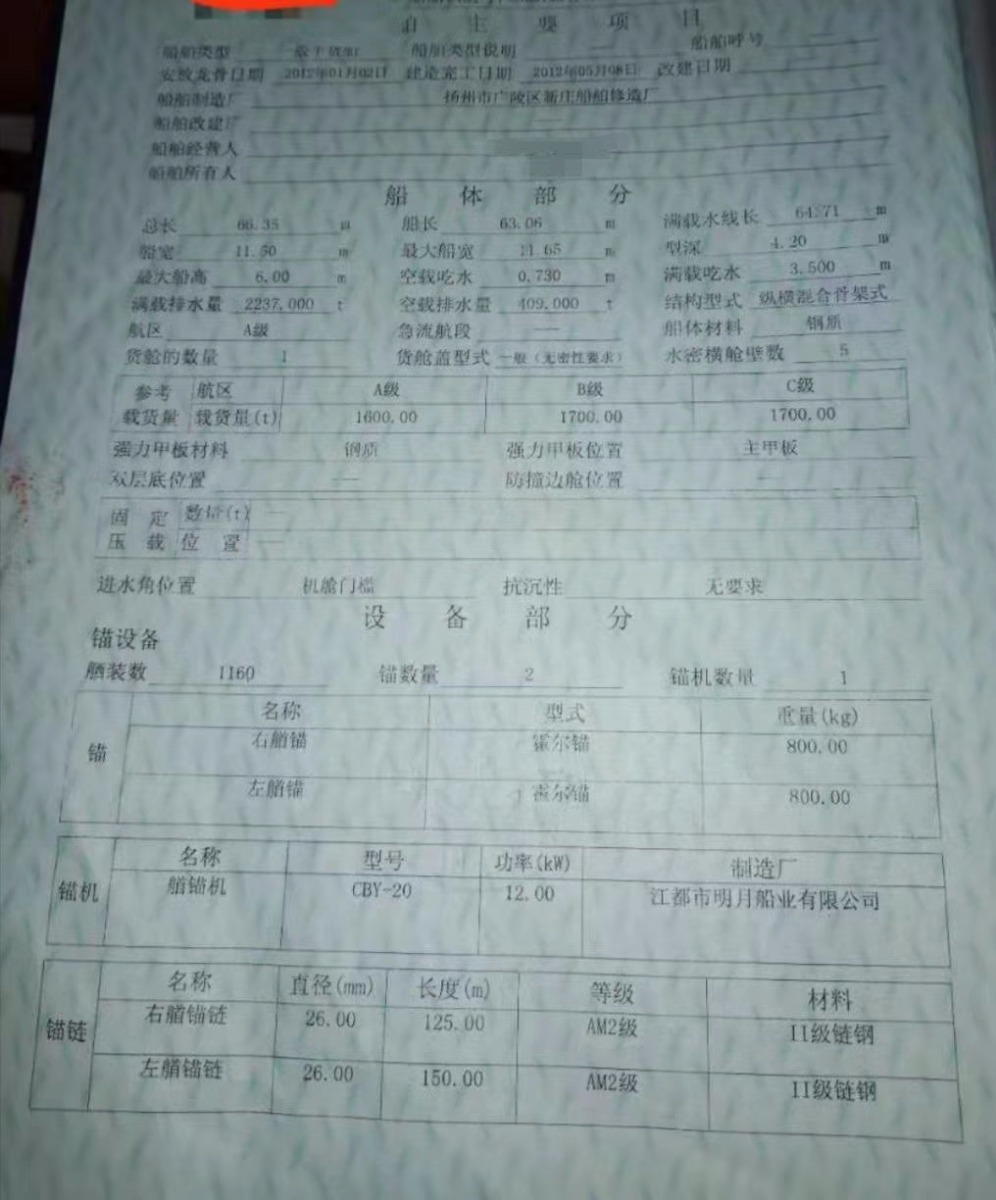 主 要 项 目
船舶类型 船舶类型说明 — 船舶呼号 —
安放龙骨日期 2012年01月02日 建造完工日期 2012年05月08日 改建日期 —
船舶制造厂 扬州市广陵区新庄船舶修造厂
船舶改建厂 —
船舶经营人
船舶所有人
船 体 部 分
总长 66.35 m 船长 63.06 m 满载水线长 64.71 m
船宽 11.50 m 最大船宽 11.65 m 型深 4.20 m
最大船高 6.00 m 空载吃水 0.730 m 满载吃水 3.500 m
满载排水量 2237.000 t 空载排水量 409.000 t 结构型式 纵横混合骨架式
航区 A级 急流航段 — 船体材料 钢质
货舱的数量 1 货舱盖型式 一般（无密性要求） 水密横舱壁数 5
参考 航区 A级 B级 C级
载货量 载货量(t) 1600.00 1700.00 1700.00
强力甲板材料 钢质 强力甲板位置 主甲板
双层底位置 — 防撞边舱位置 —
固 定 数量(t) —
压 载 位 置 —
进水角位置 机舱门槛 抗沉性 无要求
设 备 部 分
锚设备
舾装数 1160 锚数量 2 锚机数量 1
锚 名称 型式 重量(kg)
右艏锚 霍尔锚 800.00
左艏锚 霍尔锚 800.00
锚机 名称 型号 功率(kW) 制造厂
艏锚机 CBY-20 12.00 江都市明月船业有限公司
锚链 名称 直径(mm) 长度(m) 等级 材料
右艏锚链 26.00 125.00 AM2级 II级链钢
左艏锚链 26.00 150.00 AM2级 II级链钢